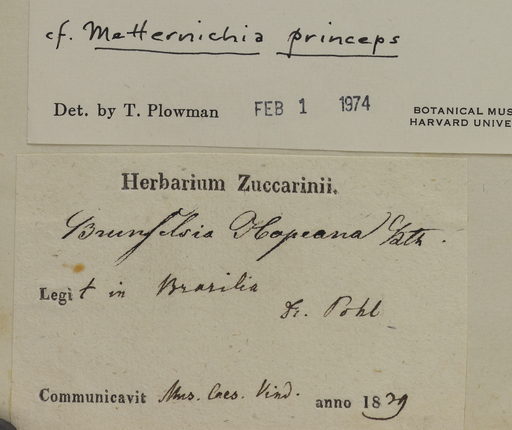 cf. Metternichia princeps
Det. by T. Plowman FEB 1 1974
BOTANICAL MUS
HARVARD UNIVE
Herbarium Zuccarinii.
Brunfelsia Hopeana
Legit in Brasilia
Dr. Pohl
Communicavit Mus. Caes. Vind. anno 1839